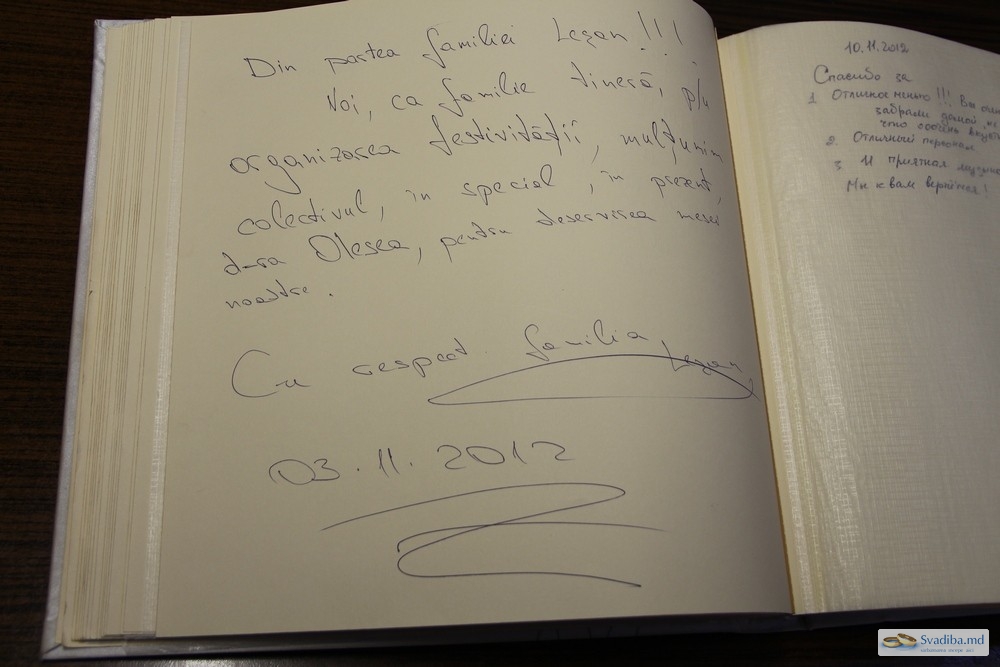 Din partea familiei Lezan !!!
Noi, ca familie tînără, p/u
organizarea festivității, mulțumim
colectivul, în special, în prezent,
d-ra Olesea, pentru deservirea mesei
noastre.
Cu respect familia Lezan
03.11.2012
10.11.2012
Спасибо за
1 Отличное меню!!! Вы
забрали домой
что
2. Отличный персонал
3 И приятная
Мы к вам вернёмся!
Svadiba.md